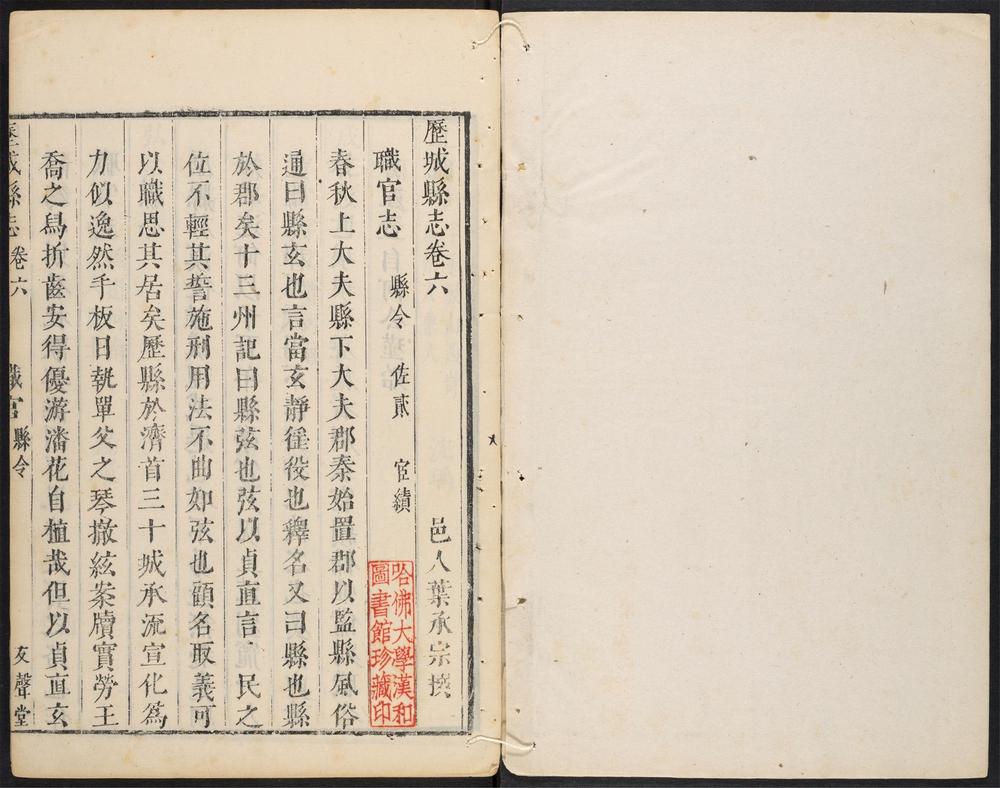 歷城縣志卷六
邑人葉承宗撰
職官志 縣令 佐貳 宦績
春秋上大夫縣下大夫郡秦始置郡以監縣風俗
通曰縣玄也言當玄靜徭役也釋名又曰縣也縣
於郡矣十三州記曰縣弦也弦以貞直言民之
位不輕其誓施刑用法不曲如弦也顧名取義可
以職思其居矣歷縣於濟首三十城承流宣化為
力似逸然手板日執單父之琴撤絃案牘實勞王
喬之舄折齒安得優游潘花自植哉但以貞直玄
歷城縣志 卷六 職官 縣令 友聲堂
哈佛大學漢和
圖書館珍藏印